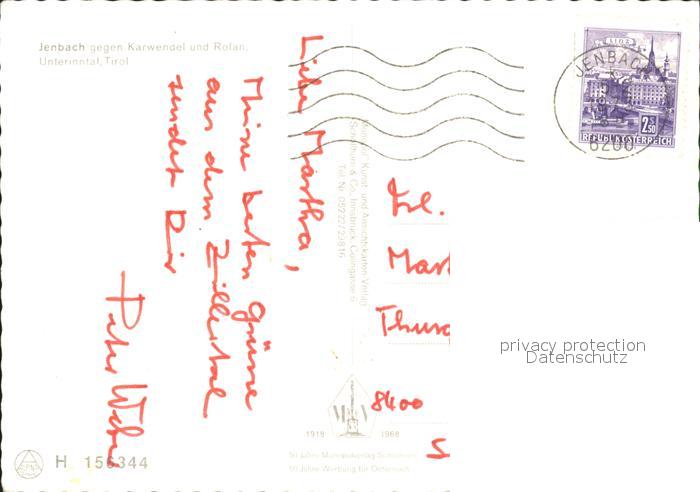 Jenbach gegen Karwendel und Rofan,
Unterinntal, Tirol
Liebe Martha,
Meine besten Grüsse
aus dem Zillertal
sendet Dir
Peter Weber
Kunst- und Ansichtskarten-Verlag
& Co., Innsbruck,
Tel. Nr. 05222/29816
LINZ
2 S 50
REPUBLIK ÖSTERREICH
JENBACH
6200
Frl.
Mar
Thur
8400
S
privacy protection
Datenschutz
1918 1968
50 Jahre
50 Jahre Werbung für Österreich
H 156344